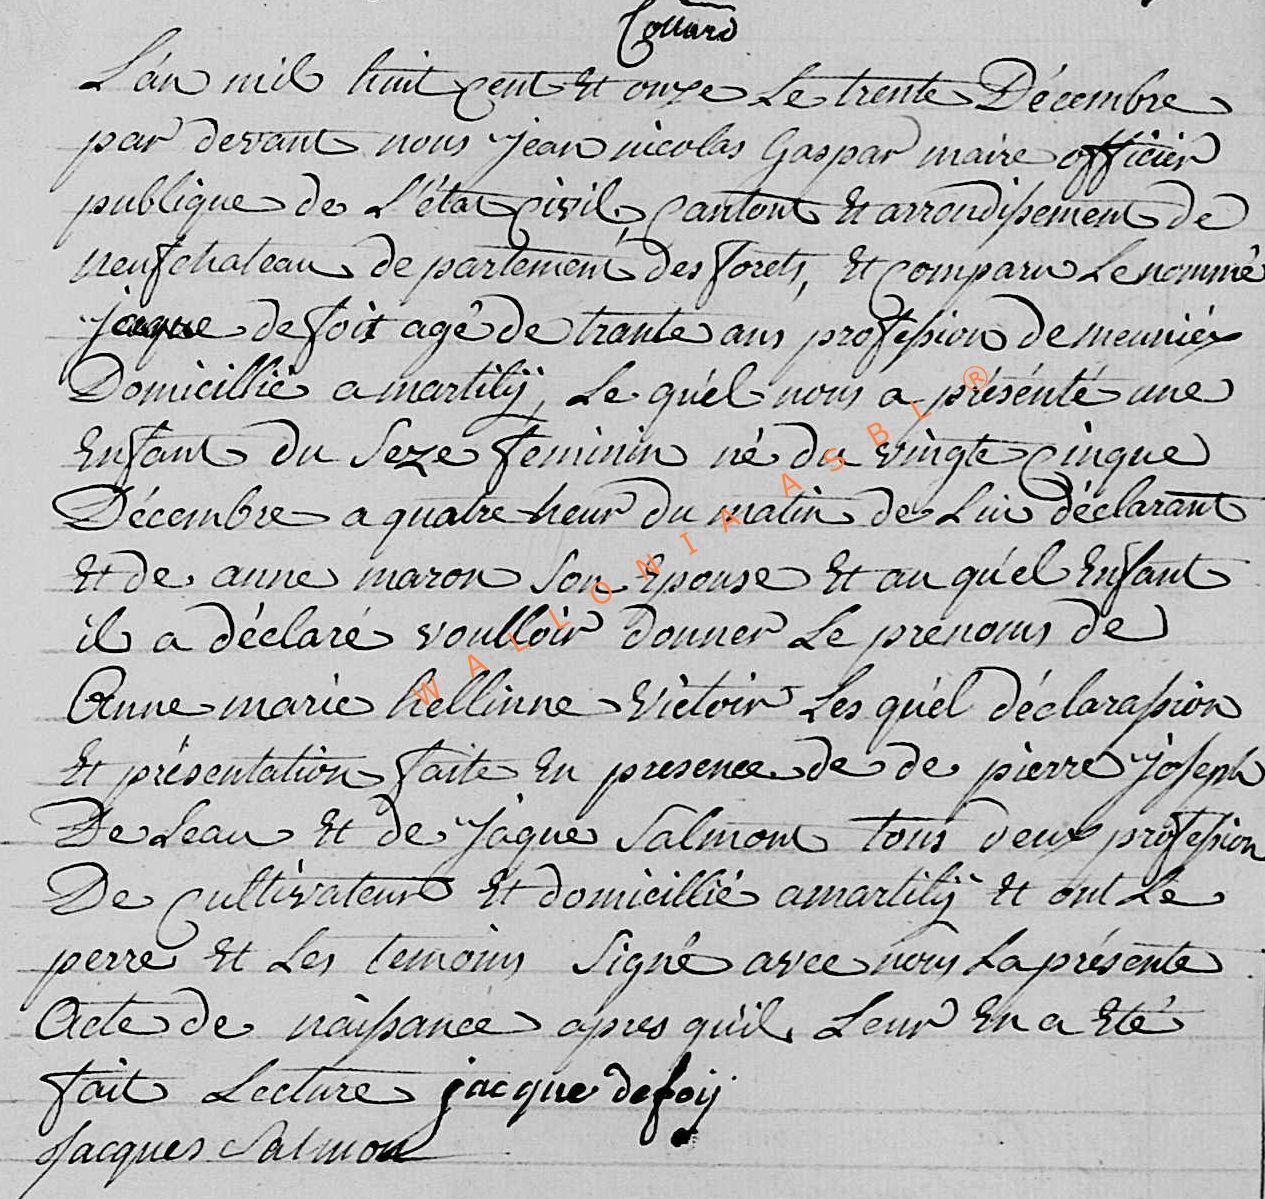 Collard
L'an mil huit cent et onze le trente Décembre
par devant nous jean nicolas Gaspar maire officier
publique de L'état civil, canton et arrondissement de
neufchateau de partement des forets, et comparu Le nommé
jaque defoit agé de trante ans profession de meuniér
Domicillié a martilÿ, Le quél nous a présénté une
Enfant du Sexe feminin né du vingte cinque
Décembre a quatre heur du matin de Lui déclarant
et de anne maron son Epouse et au quél Enfant
il a déclaré voulloir donner Le prénoms de
Anne marie hellinne victoir Les quél déclarassion
et présentation faite En presence de de pierre joseph
De Leau et de jaque Salmont tous deux profession
De cultivateur et domicillié a martilÿ et ont Le
perre et Les temoins Signé avec nous La présente
Acte de naissance apres quil Leur En a Eté
fait Lecture jacque defoij
Jacques Salmon
WALLONIA ASBL ®